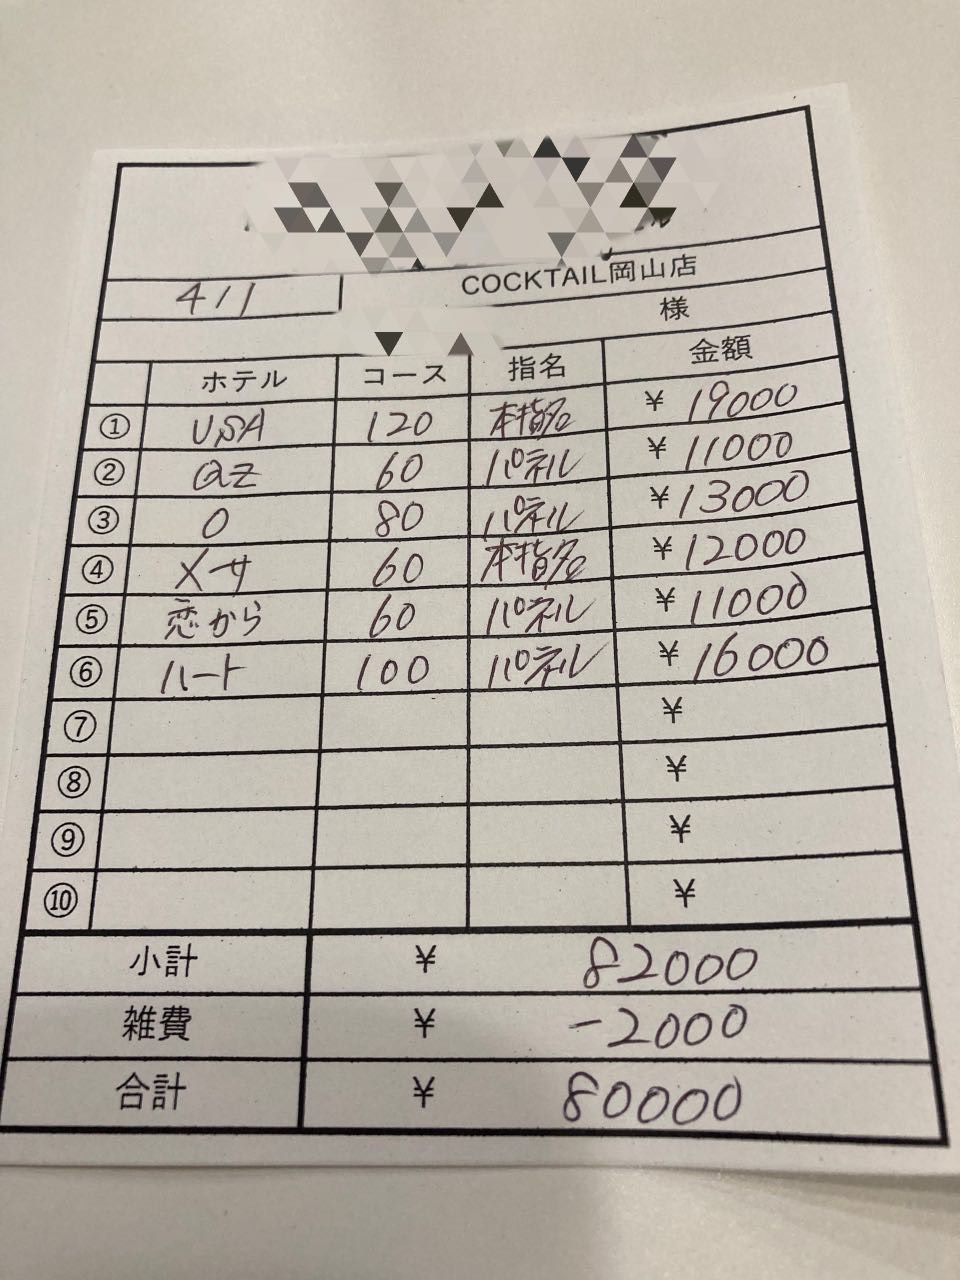 411 COCKTAIL岡山店
様
ホテル コース 指名 金額
① USA 120 本指名 ¥ 19000
② az 60 パネル ¥ 11000
③ O 80 パネル ¥ 13000
④ メサ 60 本指名 ¥ 12000
⑤ 恋から 60 パネル ¥ 11000
⑥ ハート 100 パネル ¥ 16000
⑦ ¥
⑧ ¥
⑨ ¥
⑩ ¥
小計 ¥ 82000
雑費 ¥ -2000
合計 ¥ 80000